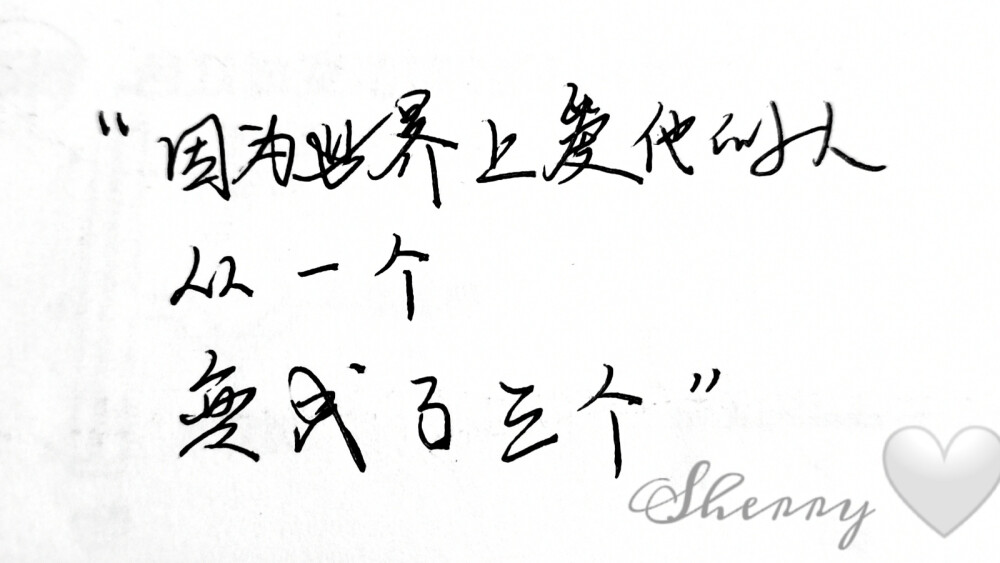 “因为世界上爱他的人
从一个
变成了三个”
Sherry